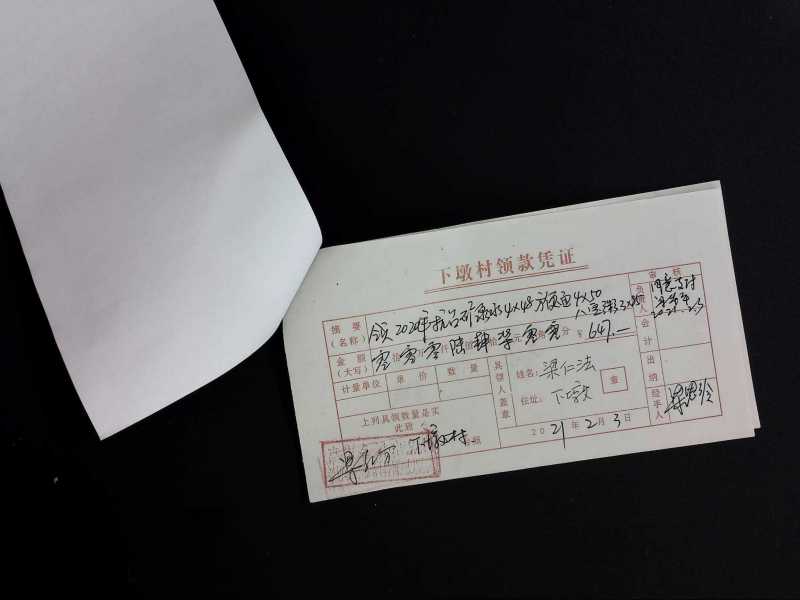 下墩村领款凭证
摘要
(名称)
领2020年抗台矿泉水4×48方便面4×50
八宝粥3×
金额
(大写)
零零零陆肆柒零零 ¥647.—
计量单位 单价 数量
上列具领数量是实
此致
下墩村
具领人盖章
姓名:梁仁法
住址:下墩
章
2021年2月3日
审核
负责人
同意支付
2021.2.3
会计
出纳
经手人